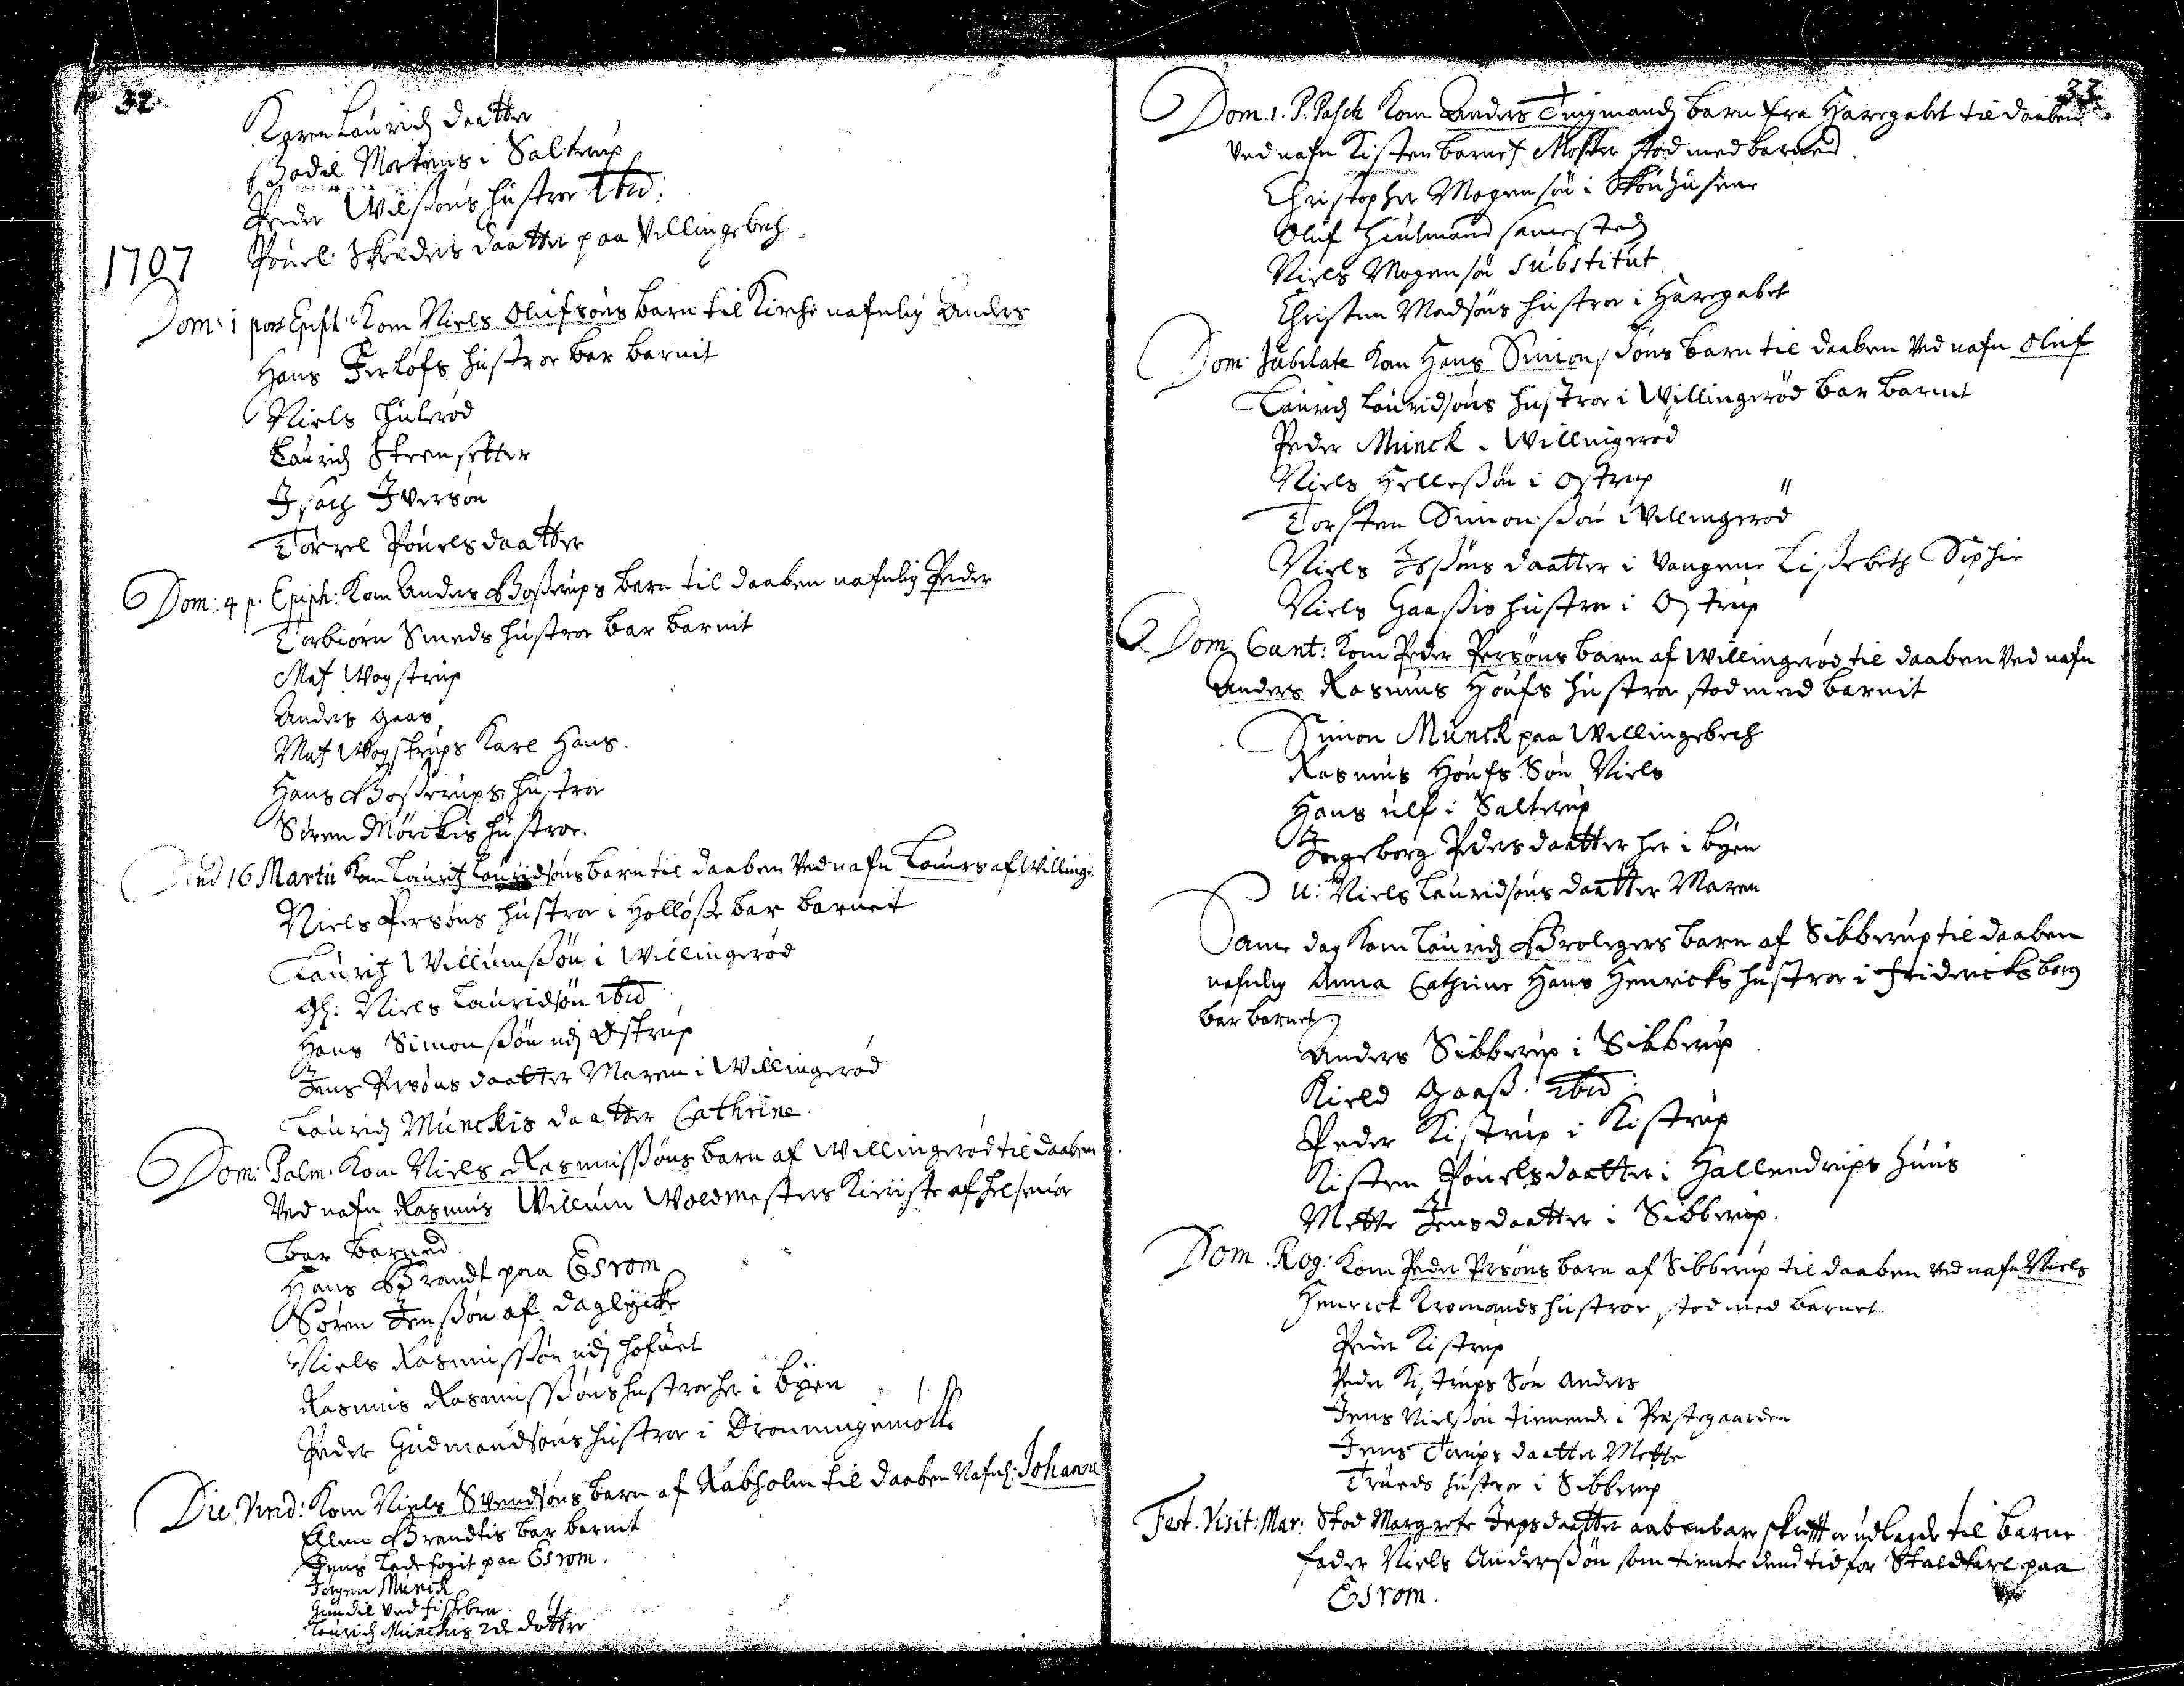 32
Karen Lauridz daatter
Bodil Mortens i Salterup
Peder Wilssøns hustroe Ibid:
1707 Pouel Skreders daatter paa Villingebech
Dom: 1 post Epift: Kom Niels Olufsøns barn til Kircke nafnlig Anders
Hans Ferløfs hustroe bar barnit
Niels Hulerød
Lauridz Steensetter
Isach Iversøn
Torrel Pouelsdaatter
Dom: 4 p. Epiph: Kom Anders Bosserups barn til daaben nafnlig Peder
Torbiørn Smeds hustroe bar barnit
Mat Wogstrup
Anders Gaas
Mat Wogstrups Karl Hans.
Hans Bosserups hustroe
Søren Mørckis hustroe.
Dend 16 Martii Kom Lauritz Lauridsøns barn til daaben Ved nafn Laurs af Willing:
Niels Persøns hustroe i Holløse bar barnet
Lauritz Willumssøn i Willingerød
Gl: Niels Lauridsøn Ibid
Hans Simonssøn udj Østrup
Jens Persøns daatter Maren i Willingerød
Lauridz Munckis daatter Cathrine.
Dom: Palm: Kom Niels Rasmussøns barn af Willingerød til daaben
Ved nafn Rasmus Willum Woldmesters Kieriste af Helsenør
bar barned.
Hans Brandt paa Esrom
Søren Jenssøn af Dagløcke
Niels Rasmussøn udj Hofuet
Rasmus Rasmussøns hustroe her i byen
Peder Gudmandsøns hustroe i Dronningemølle
Die Virid: Kom Niels Svendsøns barn af Rabholm til daaben Nafnl: Johanne
Ellen Brandtis bar barnit
Jens Ladefogit paa Esrom.
Jørgen Munck
Gundil Ved fiskeren
Lauridz Munckis 2de døttre
33
Dom. 1. P. Pasch Kom Anders Tingmandz barn fra Haregabet til daaben
Ved nafn Kisten barnet Moster stod med barned.
Christopher Mogensøn i Skouhusene
Oluf Hiulmand samestedz
Niels Mogensøn Substitut
Christen Madsøns hustroe i Haregabet
Dom Jubilate Kom Hans Simonssøns barn til daaben Ved nafn Oluf
Lauridz Lauridsøns hustroe i Willingerød bar barnet
Peder Munck i Willingerød
Niels Hellessøn i Ostrup
Torsten Simonssøn i Villingerød
Niels Ibssøns daatter i Vangene Lissebeth Sophie
Niels Gaassis hustroe i Ostrup
Dom: Cant: Kom Peder Persøns barn af Willingerød til daaben Ved nafn
Anders Rasmus Houfs hustroe stod med barnit
Simon Munck paa Willingebech
Rasmus Houfs Søn Niels
Hans Ulf i Salterup
Ingeborg Pedersdaatter her i byen
U: Niels Lauridsøns daatter Maren
Same dag Kom Lauridz Brolegers barn af Sibberup til daaben
nafnlig Anna Cathrine Hans Henricks hustroe i Fridericksborg
bar barnet
Anders Sibberup i Sibberup
Kield Gaass. Ibid:
Peder Kistrup i Kistrup
Kisten Pouelsdaatter i Hallendrups Huus
Mette Jensdaatter i Sibberup.
Dom. Rog: Kom Peder Persøns barn af Sibberup til daaben Ved nafn Niels
Henrick Kromands hustroe stod med barnet
Peder Kistrup
Peder Kistrups Søn Anders
Jens Nielssøn tienende i Prestegaarden
Jens Torups daatter Mette
Trueds hustroe i Sibberup
Fest. Visit: Mar: Stod Margrete Jepsdaatter aabenbare skrifft oc udlagde til barne
fader Niels Anderssøn som tiente dend tid for Staldkarl paa
Esrom.